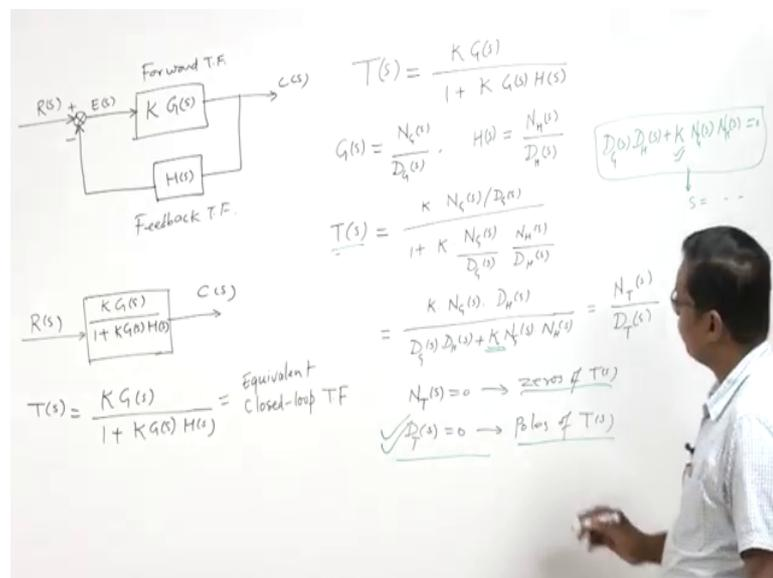 Forward T.F.
R(s) + E(s) K G(s) C(s)
−
H(s)
Feedback T.F.
R(s) K G(s) / 1 + K G(s) H(s) C(s)
T(s) = K G(s) / 1 + K G(s) H(s) = Equivalent
Closed-loop TF
T(s) = K G(s) / 1 + K G(s) H(s)
G(s) = N_G(s) / D_G(s) . H(s) = N_H(s) / D_H(s)
T(s) = K N_G(s)/D_G(s) / 1 + K N_G(s)/D_G(s) N_H(s)/D_H(s)
= K N_G(s). D_H(s) / D_G(s) D_H(s) + K N_G(s) N_H(s) = N_T(s) / D_T(s)
N_T(s) = 0 → zeros of T(s)
D_T(s) = 0 → Poles of T(s)
D_G(s) D_H(s) + K N_G(s) N_H(s) = 0
s = ...